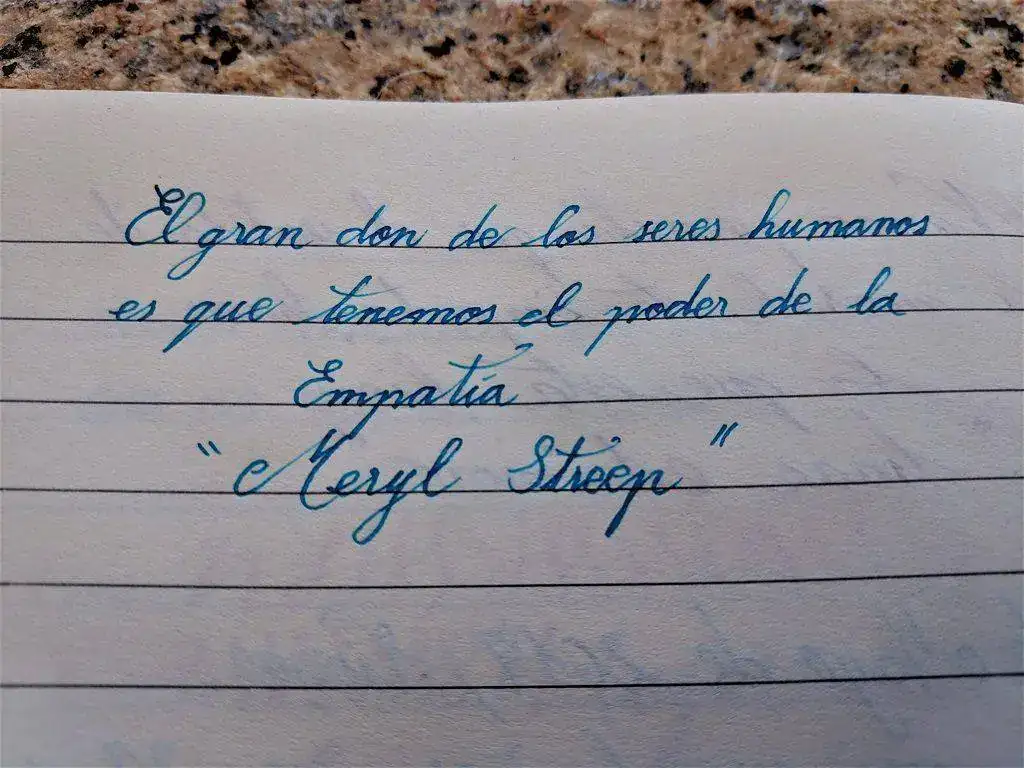 El gran don de los seres humanos
es que tenemos el poder de la
Empatía
"Meryl Streep"